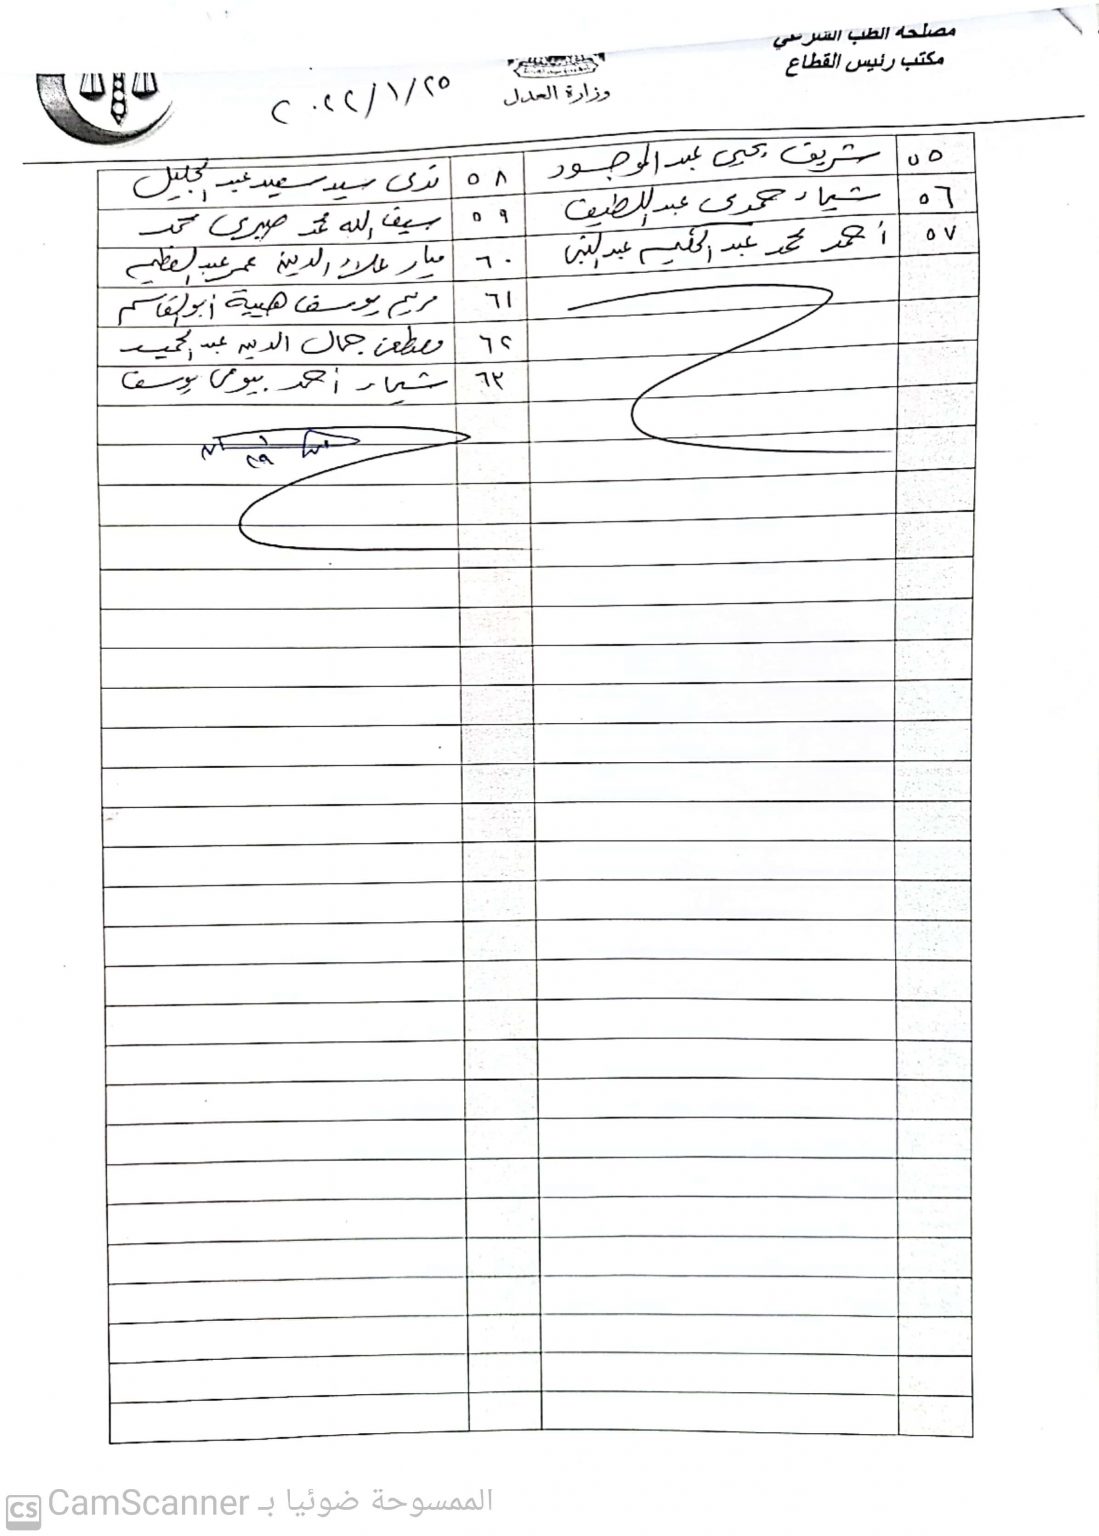 مصلحة الطب الشرعي
مكتب رئيس القطاع
وزارة العدل
٢٠٢٢/١/٢٥
٥٥ شريف يحيى عبد الموجود
٥٦ شيماء حمدى عبد اللطيف
٥٧ أحمد محمد عبد الحليم عبد النبى
٥٨ ندى سيد سعيد عبد الجليل
٥٩ سيف الله محمد صبرى محمد
٦٠ ميار علاء الدين عمر عبد العظيم
٦١ مريم يوسف هيبة أبو القاسم
٦٢ مصطفى جمال الدين عبد الحميد
٦٣ شيماء أحمد بيومى يوسف
CS CamScanner الممسوحة ضوئيا بـ